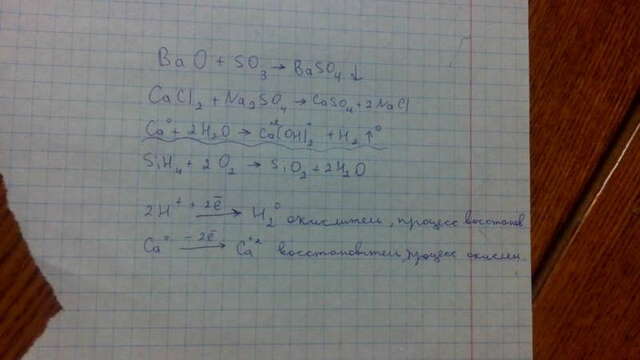 BaO + SO₃ → BaSO₄ ↓
CaCl₂ + Na₂SO₄ → CaSO₄ + 2NaCl
Ca⁰ + 2H₂O → Ca⁺²(OH)₂ + H₂↑⁰
SiH₄ + 2O₂ → SiO₂ + 2H₂O
2H⁺ +2e̅ → H₂⁰ окислител, процесс восстанов
Ca⁰ −2e̅ → Ca⁺² восстановител, процесс окислен.